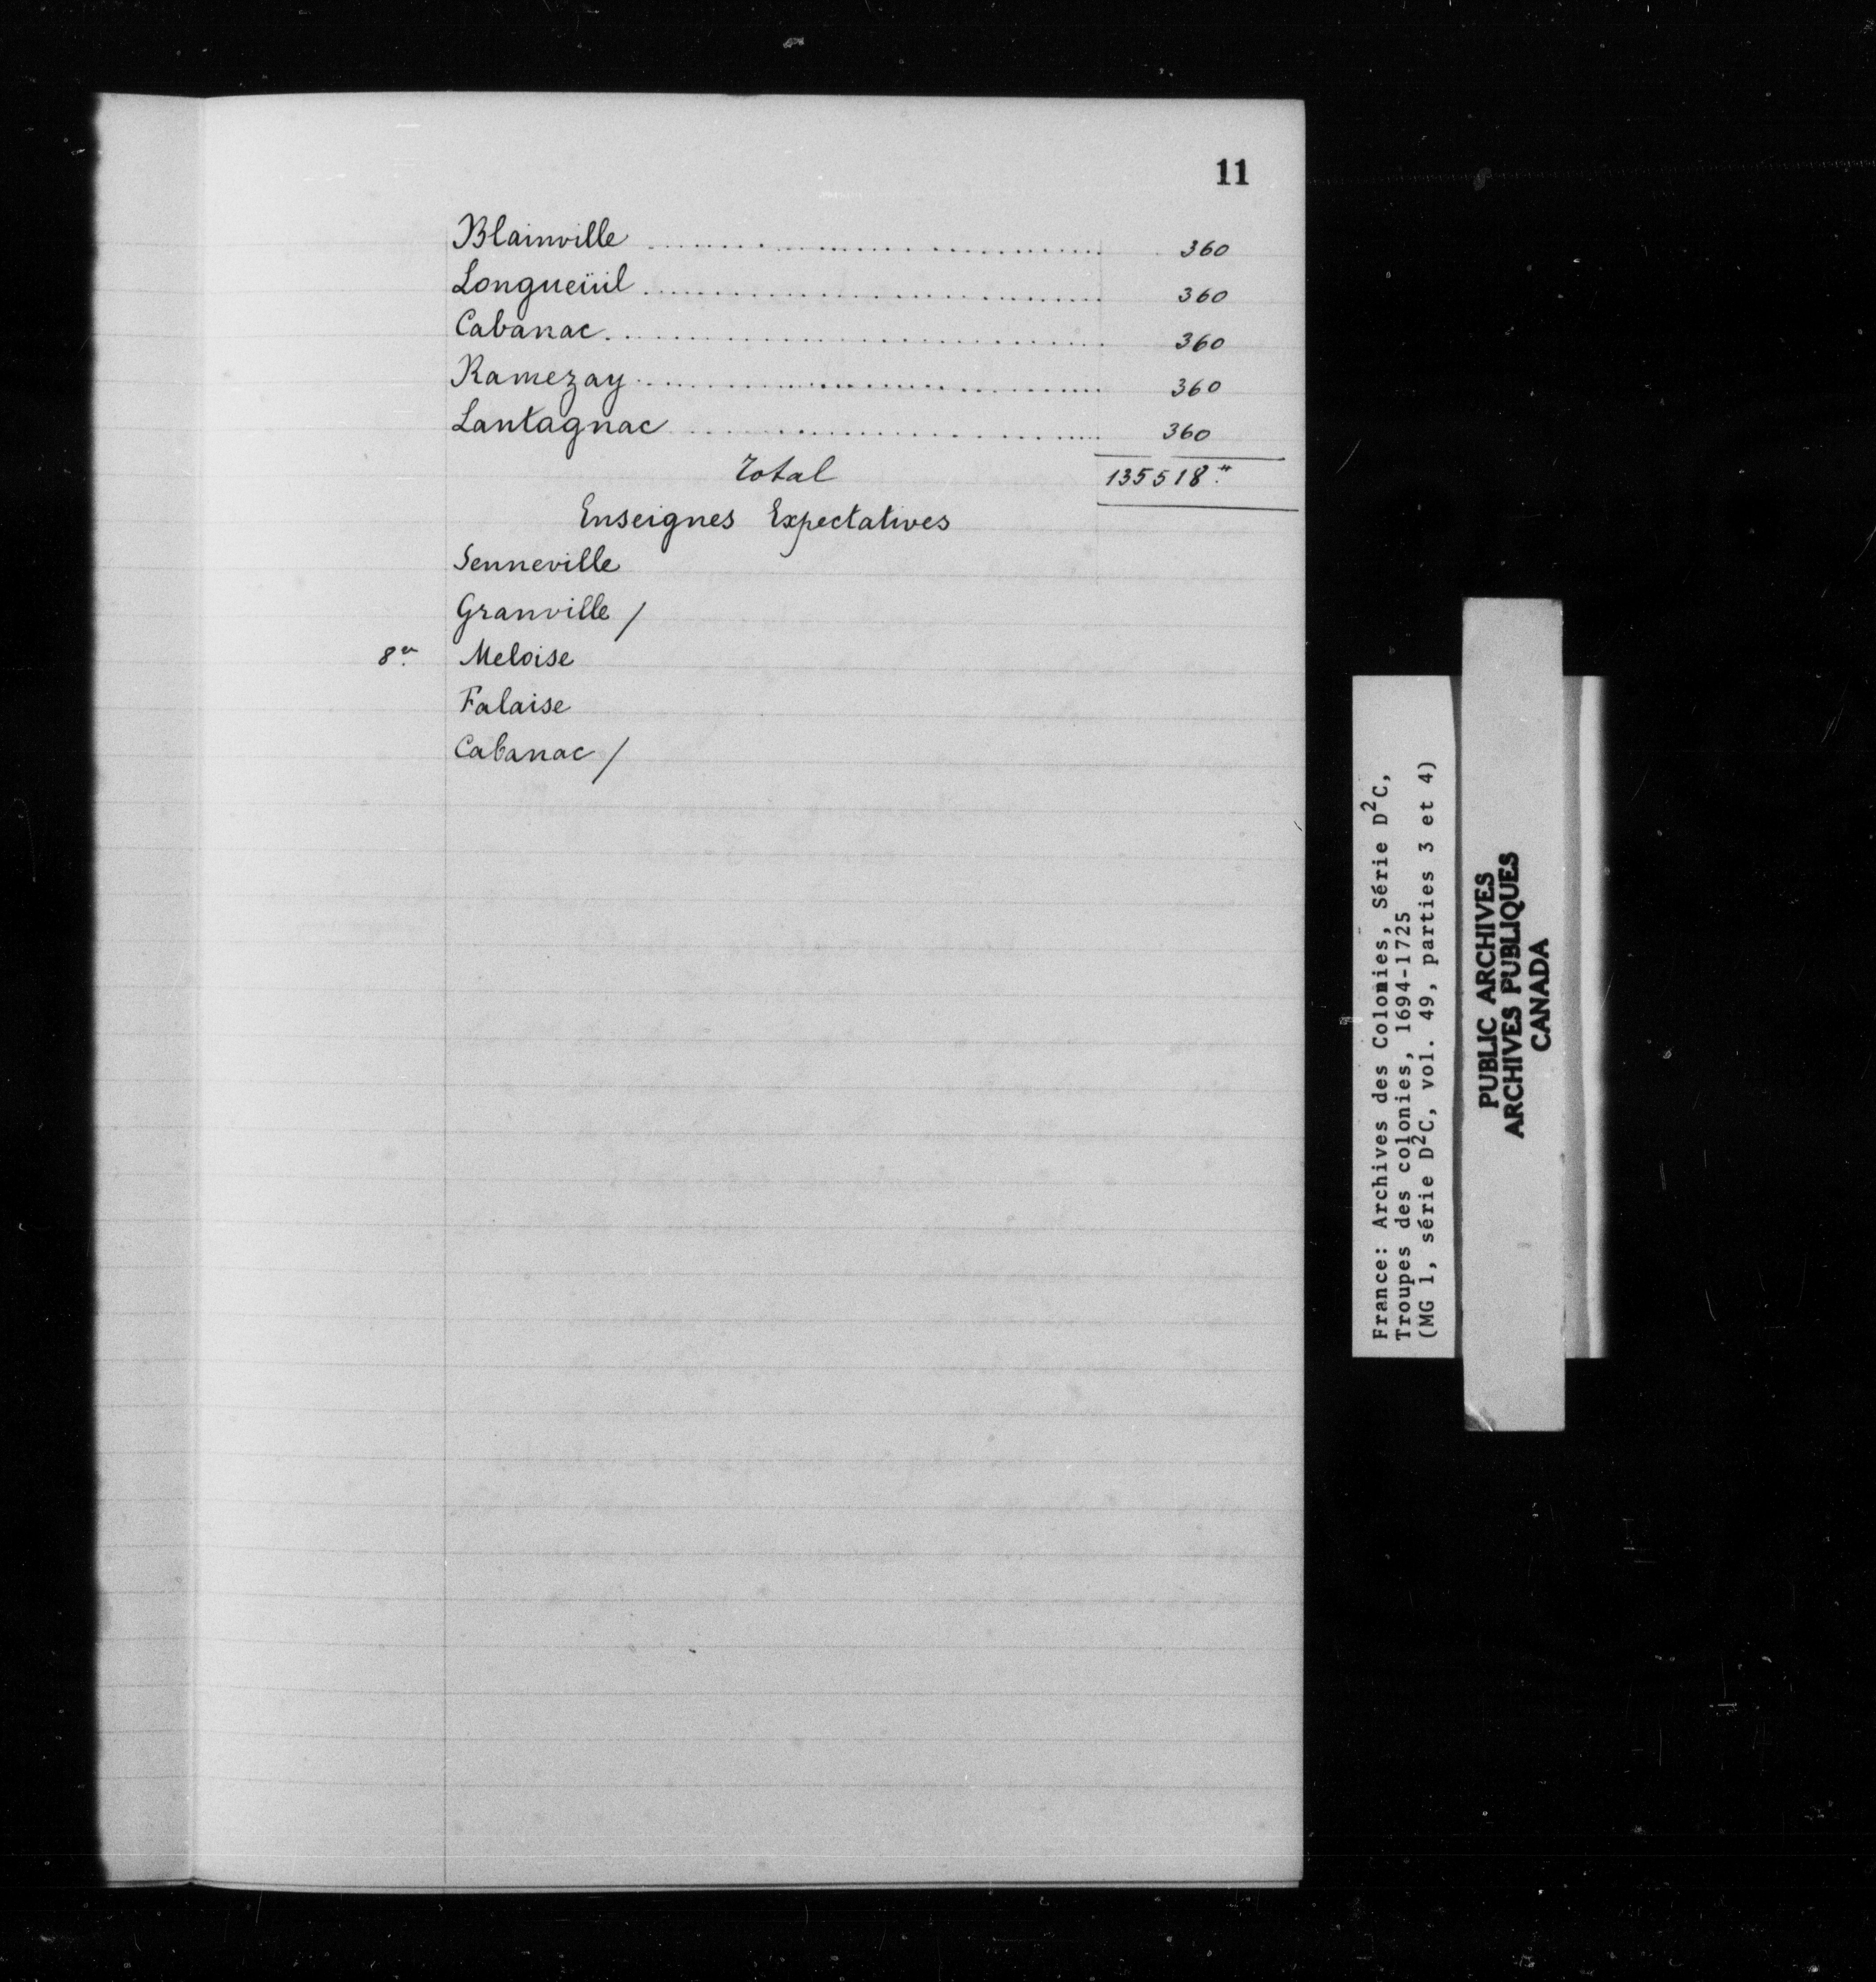 11
Blainville .......... 360
Longueüil .......... 360
Cabanac .......... 360
Ramezay .......... 360
Lantagnac .......... 360
Total 135518"
Enseignes Expectatives
Senneville
Granville /
8er Meloise
Falaise
Cabanac /
France: Archives des Colonies, Série D²C,
Troupes des colonies, 1694-1725
(MG 1, série D²C, vol. 49, parties 3 et 4)
PUBLIC ARCHIVES
ARCHIVES PUBLIQUES
CANADA